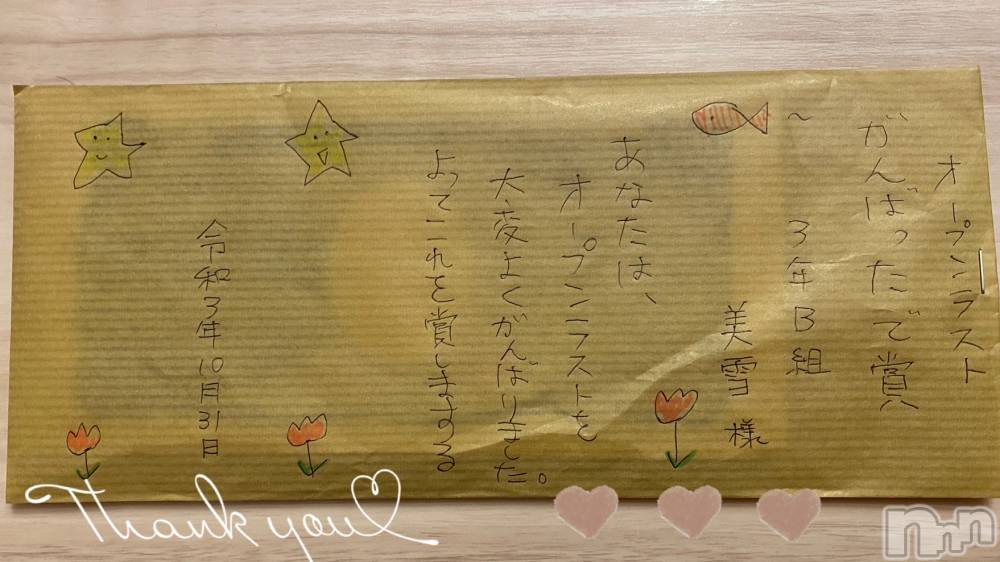 オープンラスト
がんばったで賞
〜
3年B組
美雪 様
あなたは、
オープンラストを
大変よくがんばりました。
よってこれを賞しまする
令和3年10月31日
Thank you